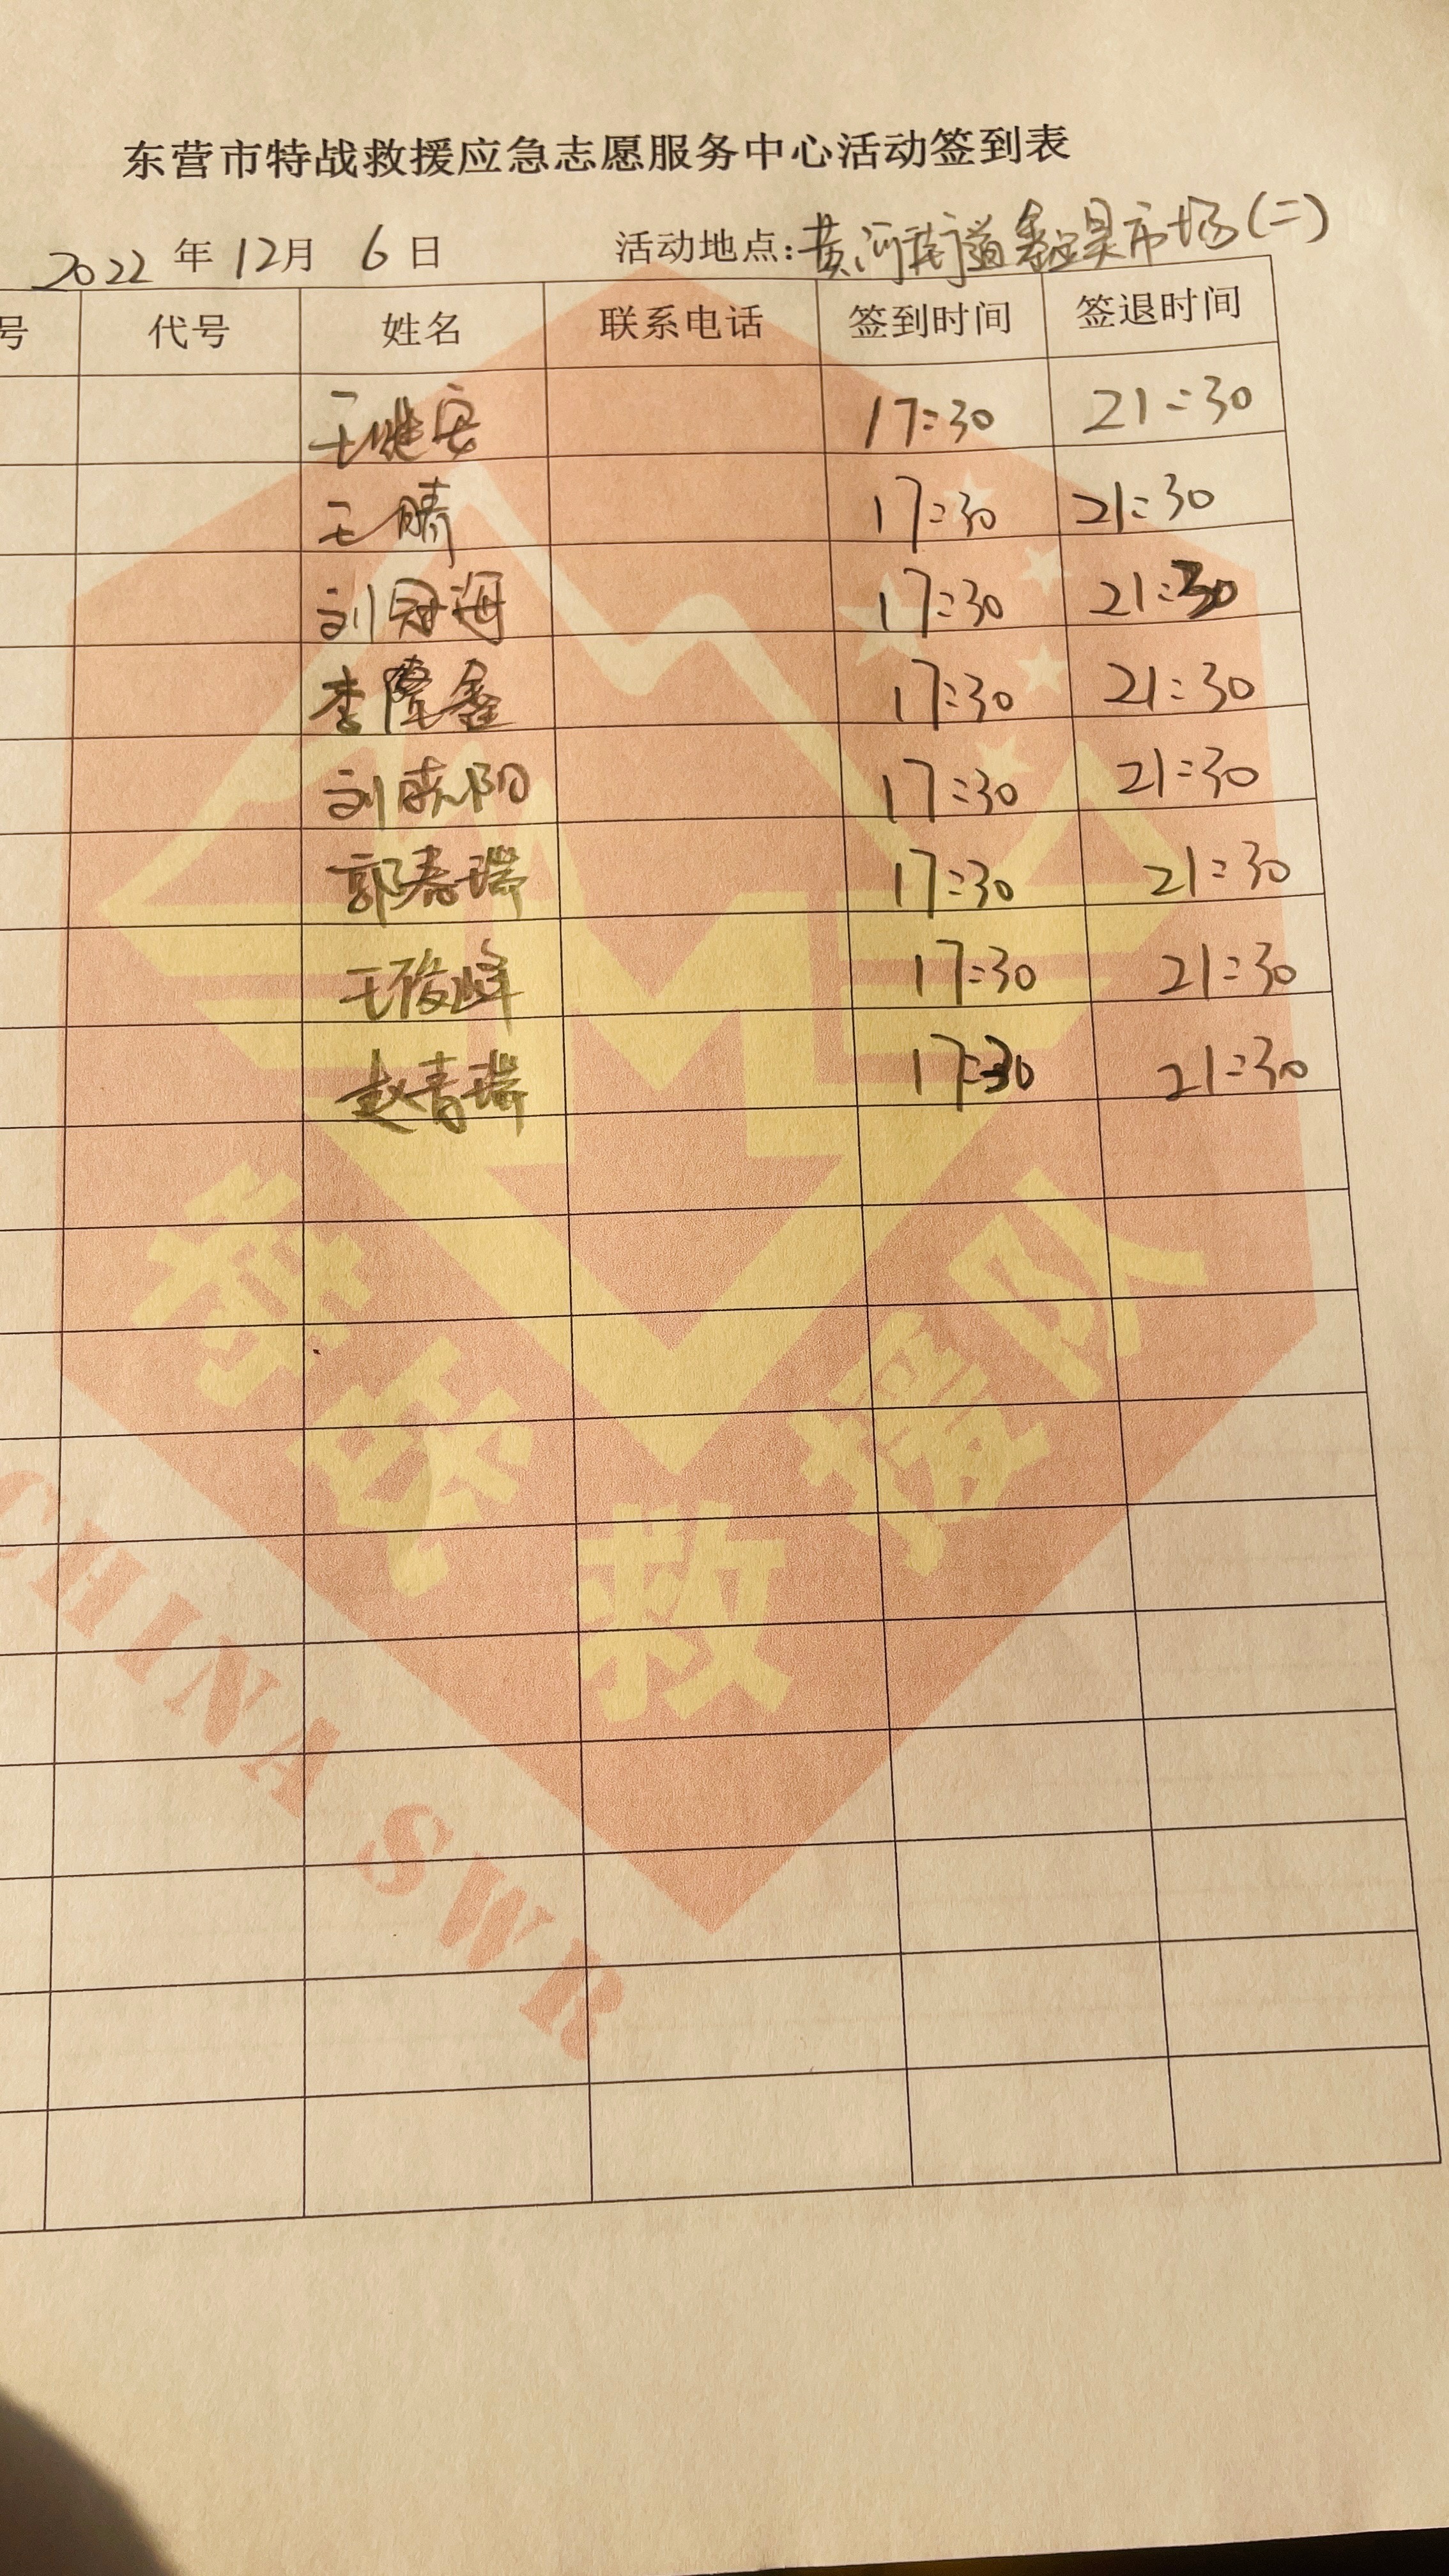 东营市特战救援应急志愿服务中心活动签到表
2022年12月6日 活动地点:黄河街道鑫昊市场(二)
号 代号 姓名 联系电话 签到时间 签退时间
王继安 17:30 21:30
王晴 17:30 21:30
刘冠海 17:30 21:30
李隆鑫 17:30 21:30
刘晓阳 17:30 21:30
郭春瑞 17:30 21:30
王俊峰 17:30 21:30
赵青瑞 17:30 21:30
救援队
CHINA SWR